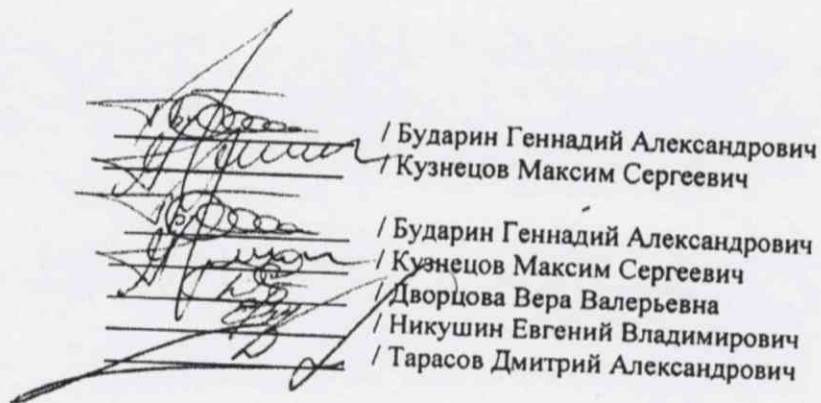 / Бударин Геннадий Александрович
/ Кузнецов Максим Сергеевич
/ Бударин Геннадий Александрович
/ Кузнецов Максим Сергеевич
/ Дворцова Вера Валерьевна
/ Никушин Евгений Владимирович
/ Тарасов Дмитрий Александрович